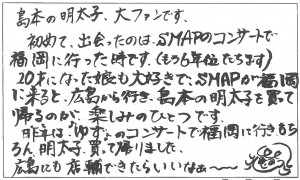 島本の明太子、大ファンです、
初めて、出会ったのは、SMAPのコンサートで
福岡に行った時です、(もう5年位たちます)
20才になった娘も大好きで、SMAPが福岡
に来ると、広島から行き、島本の明太子を買って
帰るのが、楽しみのひとつです。
昨年は「ゆず」のコンサートで福岡に行き、もち
ろん、明太子、買って帰りました、
広島にも店舗できたらいいなぁ〜〜